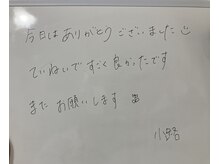 今日はありがとうございました
ていねいですごく良かったです
またお願いします